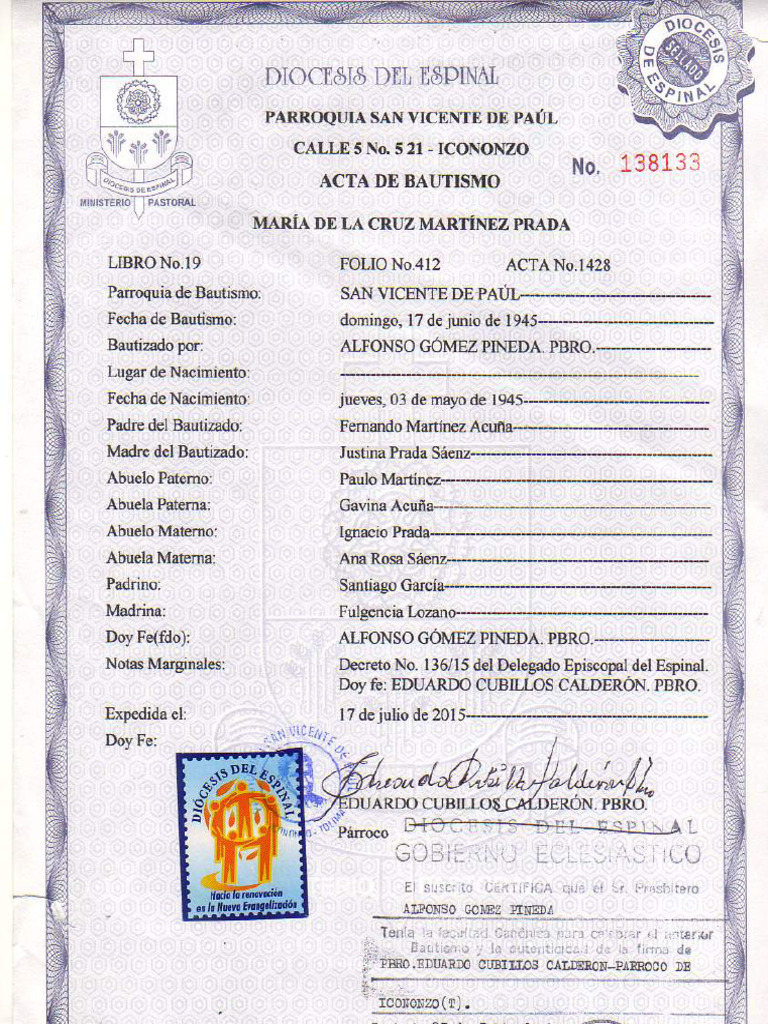 DIOCESIS DEL ESPINAL
DIOCESIS DE ESPINAL
SELLADO
PARROQUIA SAN VICENTE DE PAÚL
CALLE 5 No. 5 21 - ICONONZO
ACTA DE BAUTISMO
No. 138133
DIOCESIS DE ESPINAL
MINISTERIO PASTORAL
MARÍA DE LA CRUZ MARTÍNEZ PRADA
LIBRO No.19 FOLIO No.412 ACTA No.1428
Parroquia de Bautismo: SAN VICENTE DE PAÚL
Fecha de Bautismo: domingo, 17 de junio de 1945
Bautizado por: ALFONSO GÓMEZ PINEDA. PBRO.
Lugar de Nacimiento:
Fecha de Nacimiento: jueves, 03 de mayo de 1945
Padre del Bautizado: Fernando Martínez Acuña
Madre del Bautizado: Justina Prada Sáenz
Abuelo Paterno: Paulo Martínez
Abuela Paterna: Gavina Acuña
Abuelo Materno: Ignacio Prada
Abuela Materna: Ana Rosa Sáenz
Padrino: Santiago García
Madrina: Fulgencia Lozano
Doy Fe(fdo): ALFONSO GÓMEZ PINEDA. PBRO.
Notas Marginales: Decreto No. 136/15 del Delegado Episcopal del Espinal.
Doy fe: EDUARDO CUBILLOS CALDERÓN. PBRO.
Expedida el: 17 de julio de 2015
Doy Fe:
SAN VICENTE DE
Eduardo Cubillos Calderón Pbro
EDUARDO CUBILLOS CALDERÓN. PBRO.
Párroco
DIÓCESIS DEL ESPINAL
Hacia la renovación
en la Nueva Evangelización
DIOCESIS DEL ESPINAL
GOBIERNO ECLESIASTICO
El suscrito CERTIFICA que el Sr. Presbitero
ALFONSO GOMEZ PINEDA
Tenía la facultad Canónica para celebrar el anterior
Bautismo y la autenticidad de la firma de
PBRO.EDUARDO CUBILLOS CALDERON-PARROCO DE
ICONONZO(T).